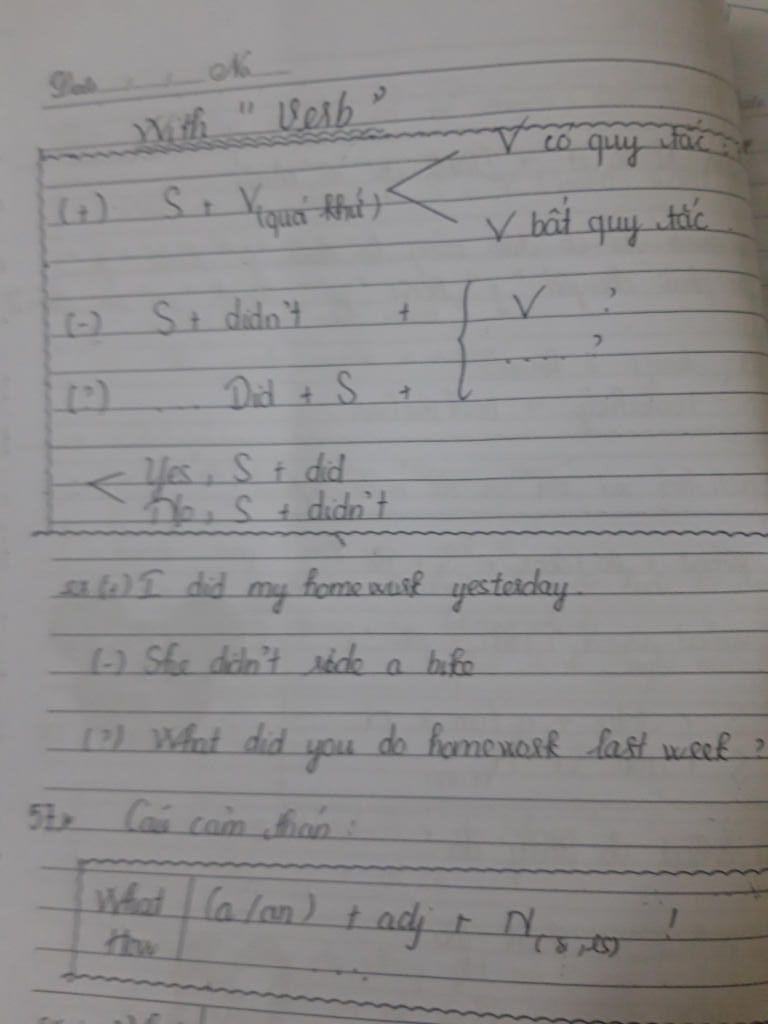 Date No
With "Verb"
V có quy tắc
(+) S + V(quá khứ)
V bất quy tắc
(-) S + didn't + V ?
..... ?
(?) .... Did + S +
Yes, S + did
No, S + didn't
(+) I did my homework yesterday.
(-) She didn't ride a bike
(?) What did you do homework last week ?
57. Câu cảm thán :
What (a/an) + adj + N(s, es) !
How ...